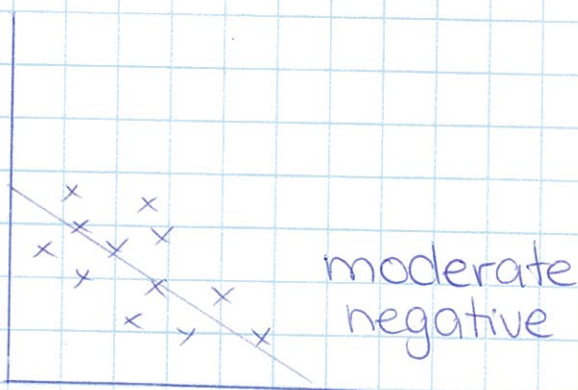 moderate
negative